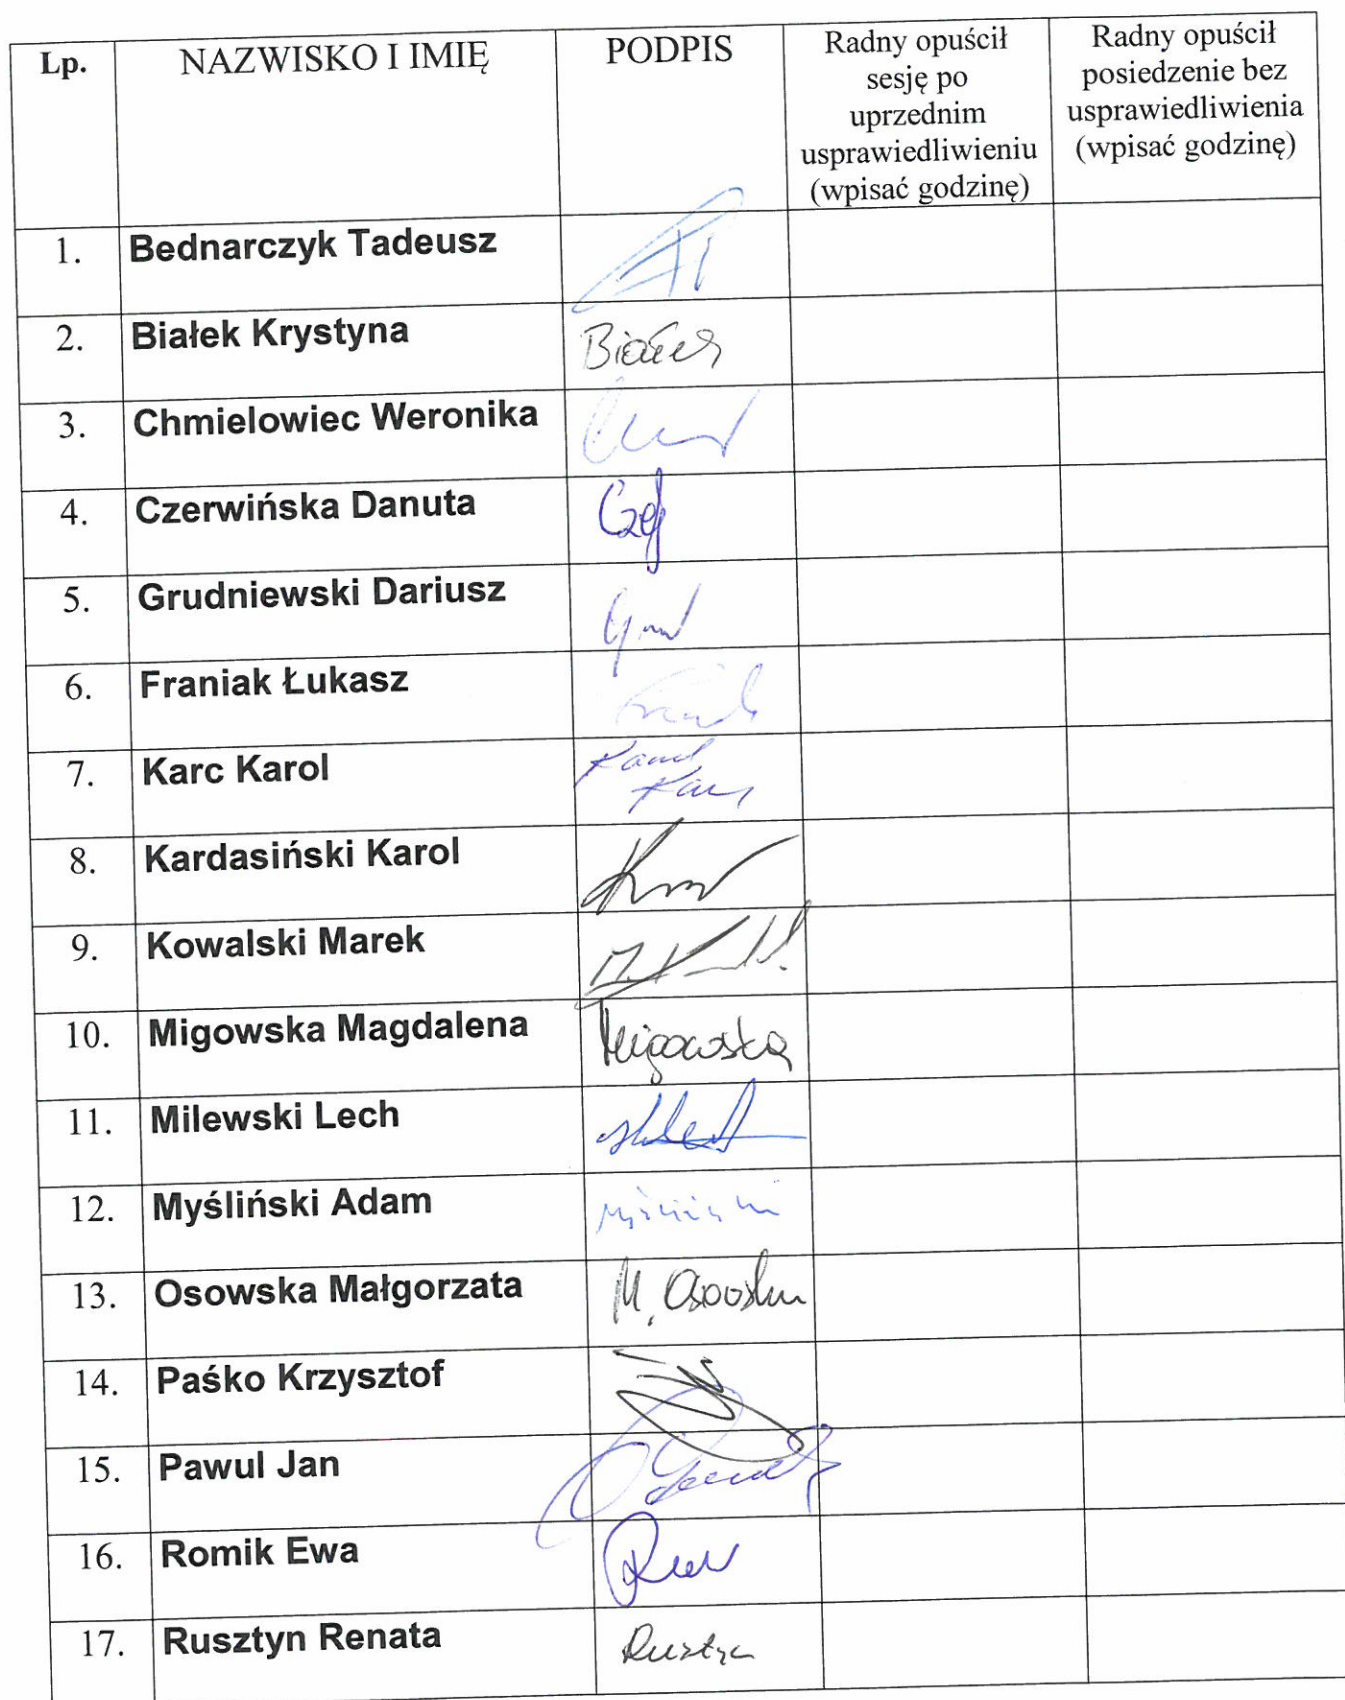 Lp. NAZWISKO I IMIĘ PODPIS Radny opuścił sesję po uprzednim usprawiedliwieniu (wpisać godzinę) Radny opuścił posiedzenie bez usprawiedliwienia (wpisać godzinę)
1. Bednarczyk Tadeusz
2. Białek Krystyna Białek
3. Chmielowiec Weronika
4. Czerwińska Danuta
5. Grudniewski Dariusz
6. Franiak Łukasz
7. Karc Karol Karol Karc
8. Kardasiński Karol
9. Kowalski Marek
10. Migowska Magdalena Migowska
11. Milewski Lech
12. Myśliński Adam Myśliński
13. Osowska Małgorzata M. Osowska
14. Paśko Krzysztof
15. Pawul Jan
16. Romik Ewa
17. Rusztyn Renata Rusztyn